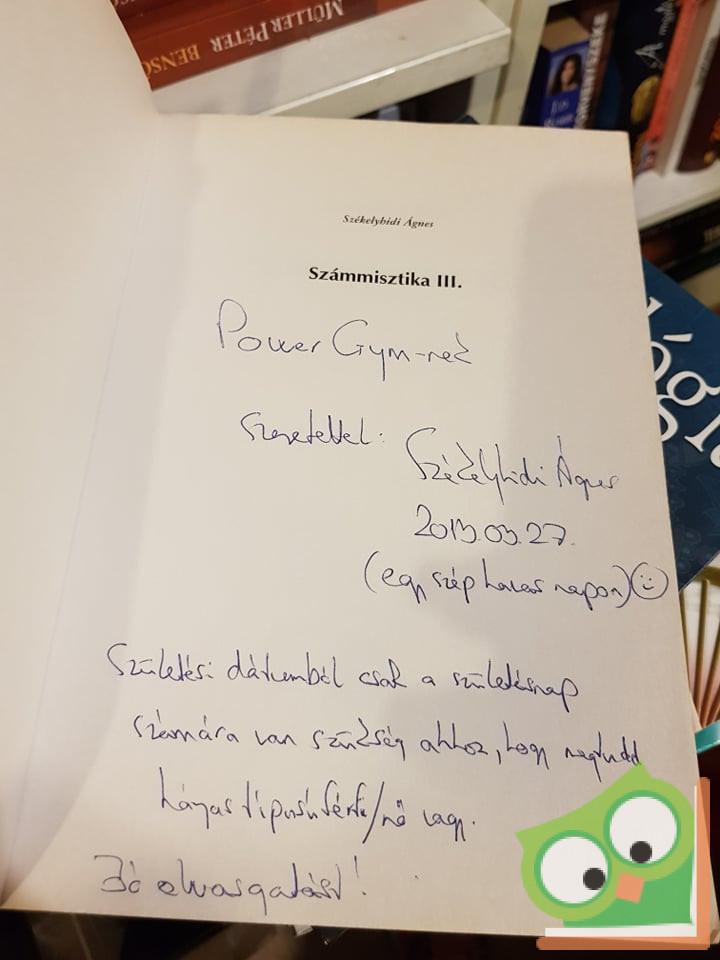 MÜLLER PÉTER BENSŐ
Székelyhidi Ágnes
Számmisztika III.
Power Gym-nek
Szeretettel:
Székelyhidi Ágnes
2013.03.27.
(egy szép havas napon)
Születési dátumból csak a születésnap
számára van szükség ahhoz, hogy megtudd
hányas típusú férfi/nő vagy.
Jó olvasgatást!